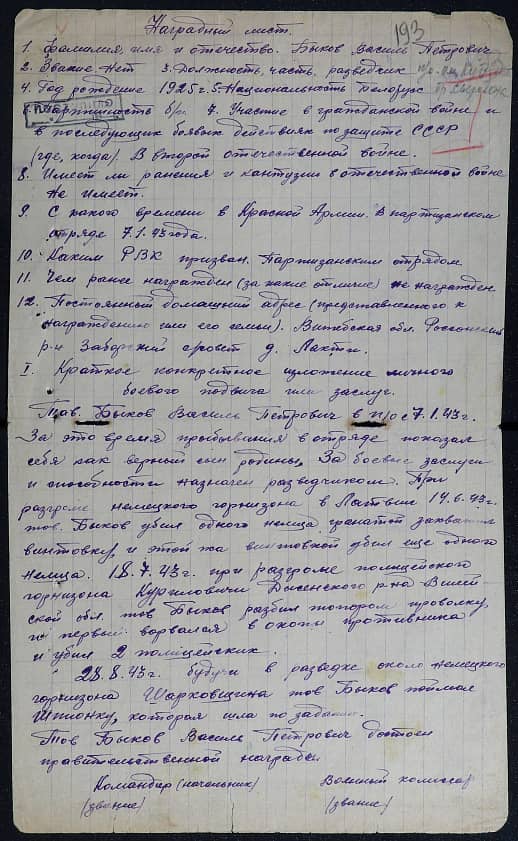 Наградный лист.
193
1. Фамилия, имя и отечество. Быков Василь Петрович
2. Звание. Нет 3. Должность, часть, разведчик
4. Год рождение 1925 г. 5. Национальность Белорус
Партийность б/п 7. Участие в гражданской войне и
в последующих боевых действиях по защите СССР
(где, когда). В второй отечественной войне.
8. Имеет ли ранения и контузии в отечественной войне
Не имеет.
9. С какого времени в Красной Армии. В партизанском
отряде 7.1.43 года.
10. Каким РВК призван. Партизанским отрядом
11. Чем ранее награжден (за какие отличие) не награжден
12. Постоянный домашний адрес (представленного к
награждению или его семьи). Витебская обл. Россонский
р-н Заборский совет д. Лахти.
I. Краткое конкретное изложение личного
боевого подвига или заслуг.
Тов. Быков Василь Петрович в п/о с 7.1.43 г.
За это время прыбывания в отряде показал
себя как верный сын родины, За боевые заслуги
и способности назначен разведчиком. При
разгроме немецкого горнизона в Латвии 14.6.43 г.
тов. Быков убил одного немца гранатой захватил
винтовку, и этой жа винтовкой убил еще одного
немца. 18.7.43 г. при разгроме полицейского
горнизона Куриловичи Дисенского р-на Вилей
ской обл. тов Быков разбил топором проволку,
и первый ворвался в окопы противника
и убил 2 полицейских.
28.8.43 г. будучи в разведке около немецкого
горнизона Шарковщина тов Быков поймал
шпионку, которая шла по заданию.
Тов Быков Василь Петрович достоен
правительственной награды
Командир (начальник) Военный комиссар
(звание) (звание)